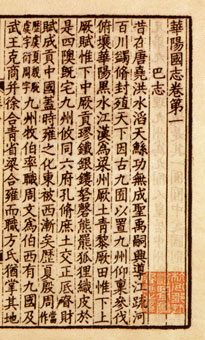 華陽國志卷第一
巴志
昔在唐堯洪水滔天鯀功無成聖禹嗣興導江疏河
百川蠲修封殖天下因古九囿以置九州仰稟參伐
俯壤華陽黑水江漢爲梁州厥土青黎厥田惟下上
厥賦惟下中厥貢璆鐵銀鏤砮磬熊羆狐狸織皮於
是四隩既宅九州攸同六府孔修庶土交正底慎財
賦成貢中國蓋時雍之化東被西漸矣歷夏殷周
九州牧伯率職周文爲伯西有九國及
武王克商并徐合青省梁合雍而職方氏猶掌其地